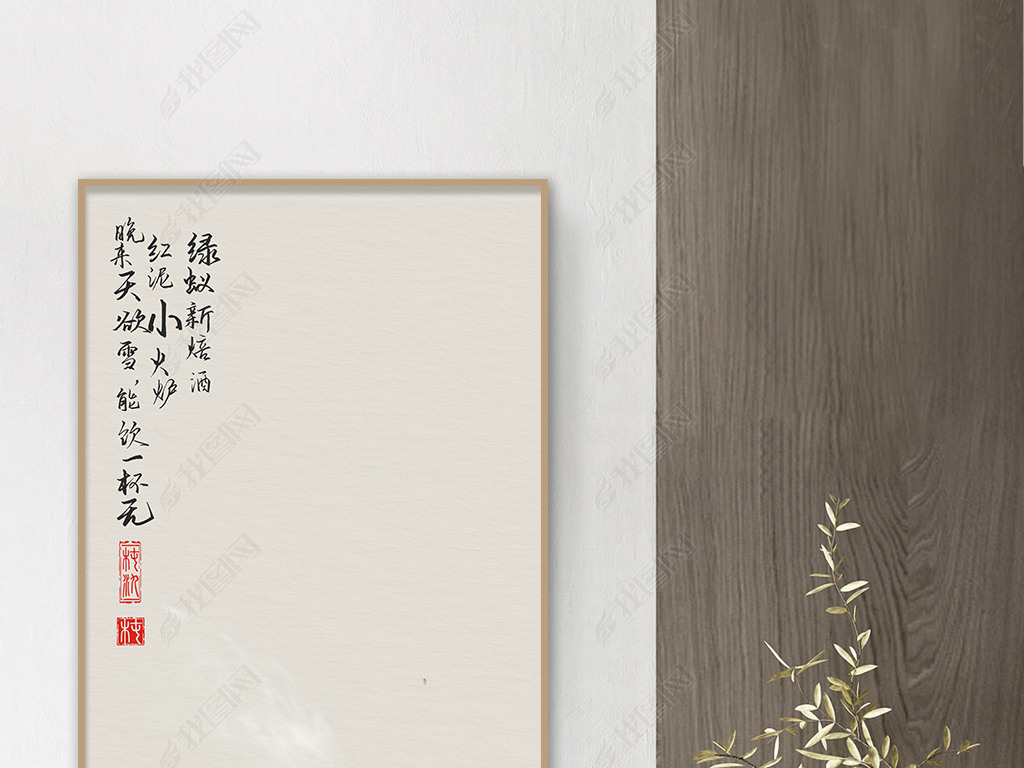 绿蚁新焙酒
红泥小火炉
晚来天欲雪，能饮一杯无
找图网